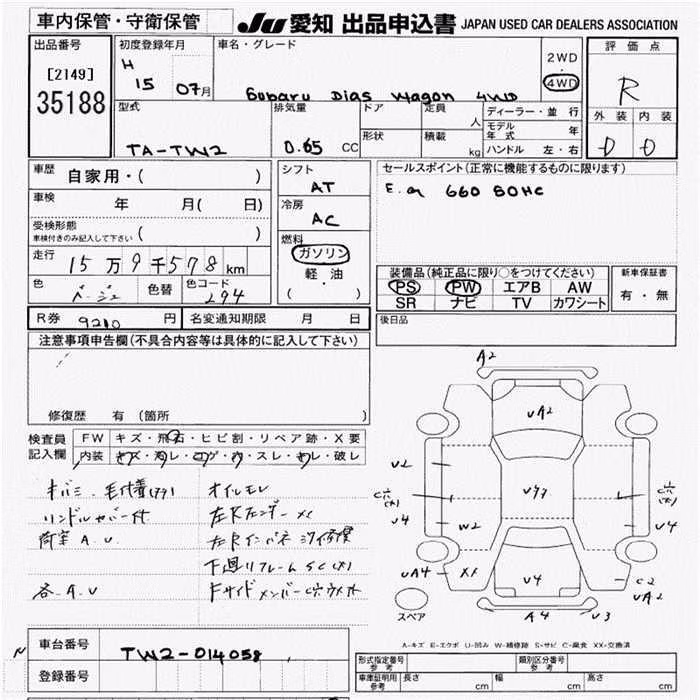 車内保管・守衛保管
JU 愛知 出品申込書 JAPAN USED CAR DEALERS ASSOCIATION
出品番号
[2149]
35188
初度登録年月
H 15 07月
車名・グレード
Subaru Dias Wagon 4WD
2WD
・
4WD
評価点
R
外装 内装
D D
型式
TA-TW2
排気量
0.65 CC
ドア
形状
定員 人
積載 kg
ディーラー・並行
モデル年式 年
ハンドル 左・右
車歴 自家用・( )
車検 年 月( 日)
受検形態
車検付きのみ記入して下さい ( )
走行 15万9千578km
色 ベージュ 色替 色コード 294
シフト
AT
冷房
AC
燃料
ガソリン
軽・油
( )
セールスポイント(正常に機能するものに限ります)
E.g 660 SOHC
装備品(純正品に限り○をつけてください)
PS PW エアB AW
SR ナビ TV カワシート
新車保証書
有・無
R券 9210 円 名変通知期限 月 日
後日品
注意事項申告欄(不具合内容等は具体的に記入して下さい)
修復歴 有(箇所 )
検査員記入欄
FW キズ・飛石・ヒビ割・リペア跡・X要
内装 キズ・汚レ・コゲ・穴・スレ・切レ・破レ
オイルモレ
荷室 A.U
下廻リフレームSC(大)
各.A.U
A2
UA2
U2
U4
W2
UA4
XX
U4
A4
U3
C2
UA2
U4
スペア
A-キズ E-エクボ U-凹み W-補修跡 S-サビ C-腐食 XX-交換済
車台番号 TW2-014058
登録番号
形式指定番号 参考
類別区分番号 参考
車庫証明用 参考 長さ cm 幅 cm 高さ cm